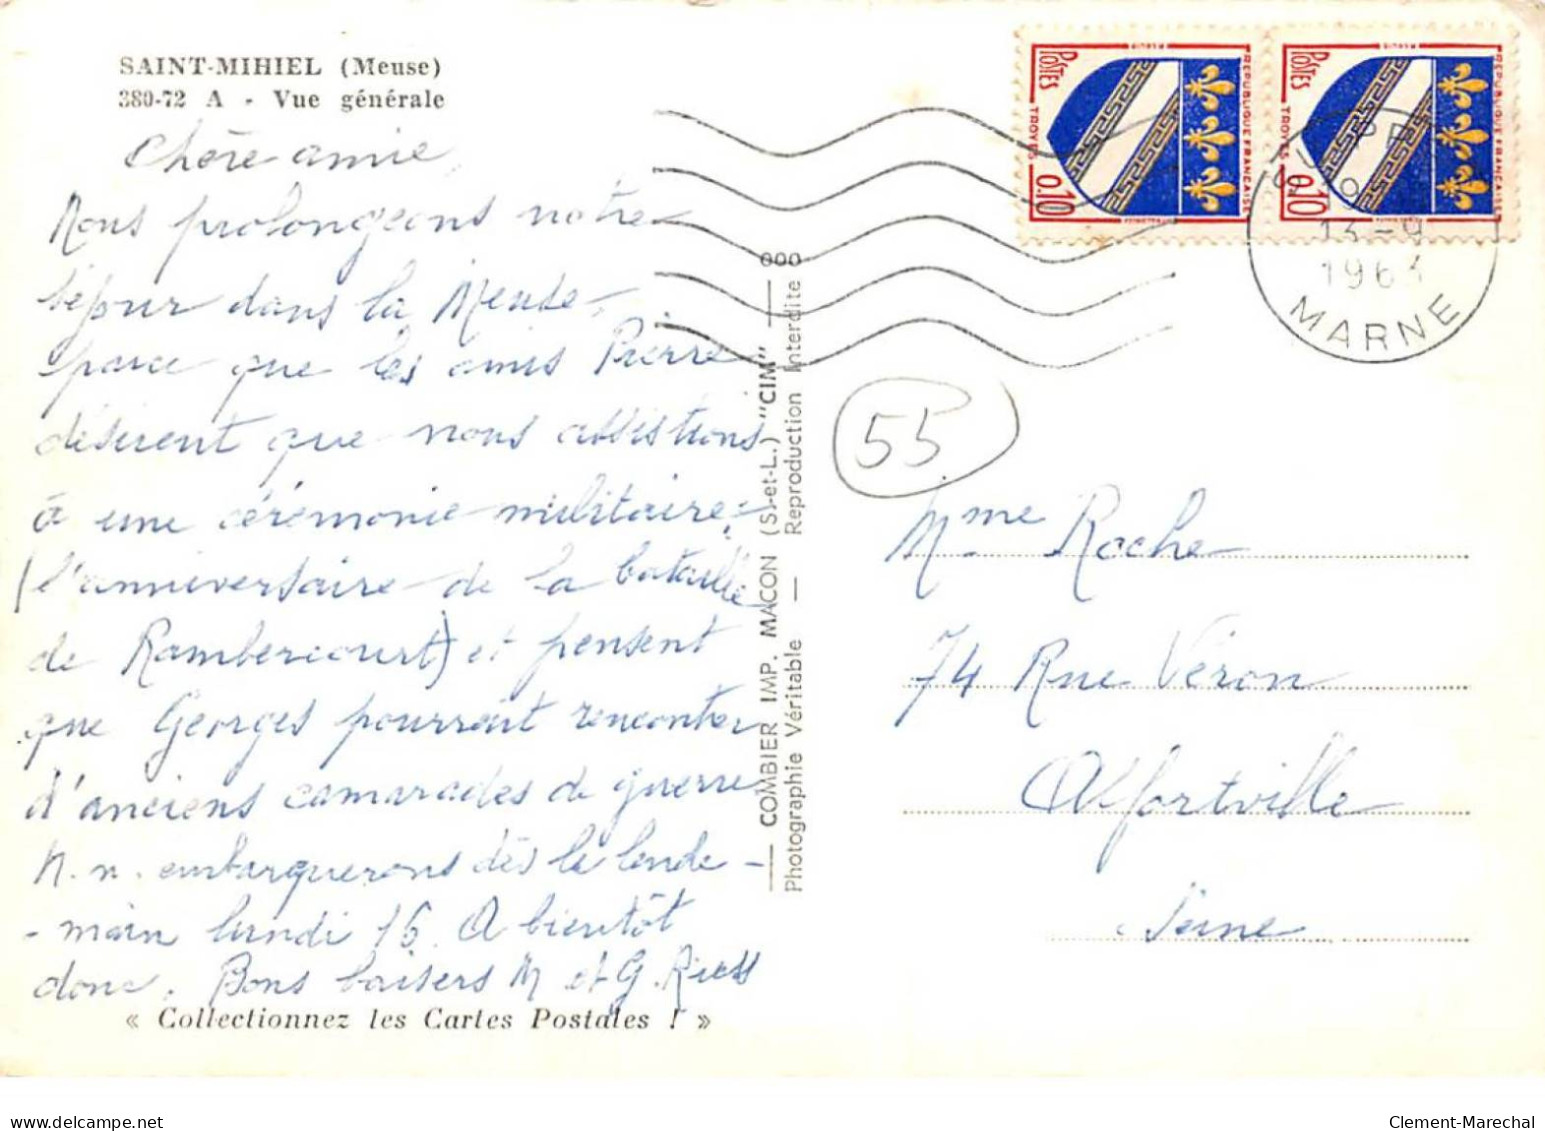 SAINT-MIHIEL (Meuse)
380-72 A - Vue générale
Chère amie,
Nous prolongeons notre
séjour dans la Meuse,
parce que les amis Pierre
désirent que nous assistions
à une cérémonie militaire
(l'anniversaire de la bataille
de Rambercourt) et pensent
que Georges pourrait rencontrer
d'anciens camarades de guerre
N. n. embarquerons dès le lende-
-main lundi 16. A bientôt
donc. Bons baisers M et G. Riess
« Collectionnez les Cartes Postales ! »
000
COMBIER IMP. MACON (S.-et-L.) "CIM"
Photographie Véritable — Reproduction Interdite
POSTES
REPUBLIQUE FRANÇAISE
TROYES
0.10
POSTES
REPUBLIQUE FRANÇAISE
TROYES
0.10
13-9
1963
MARNE
55
Mme Roche
74 Rue Véron
Alfortville
Seine
delcampe.net
Clement-Marechal